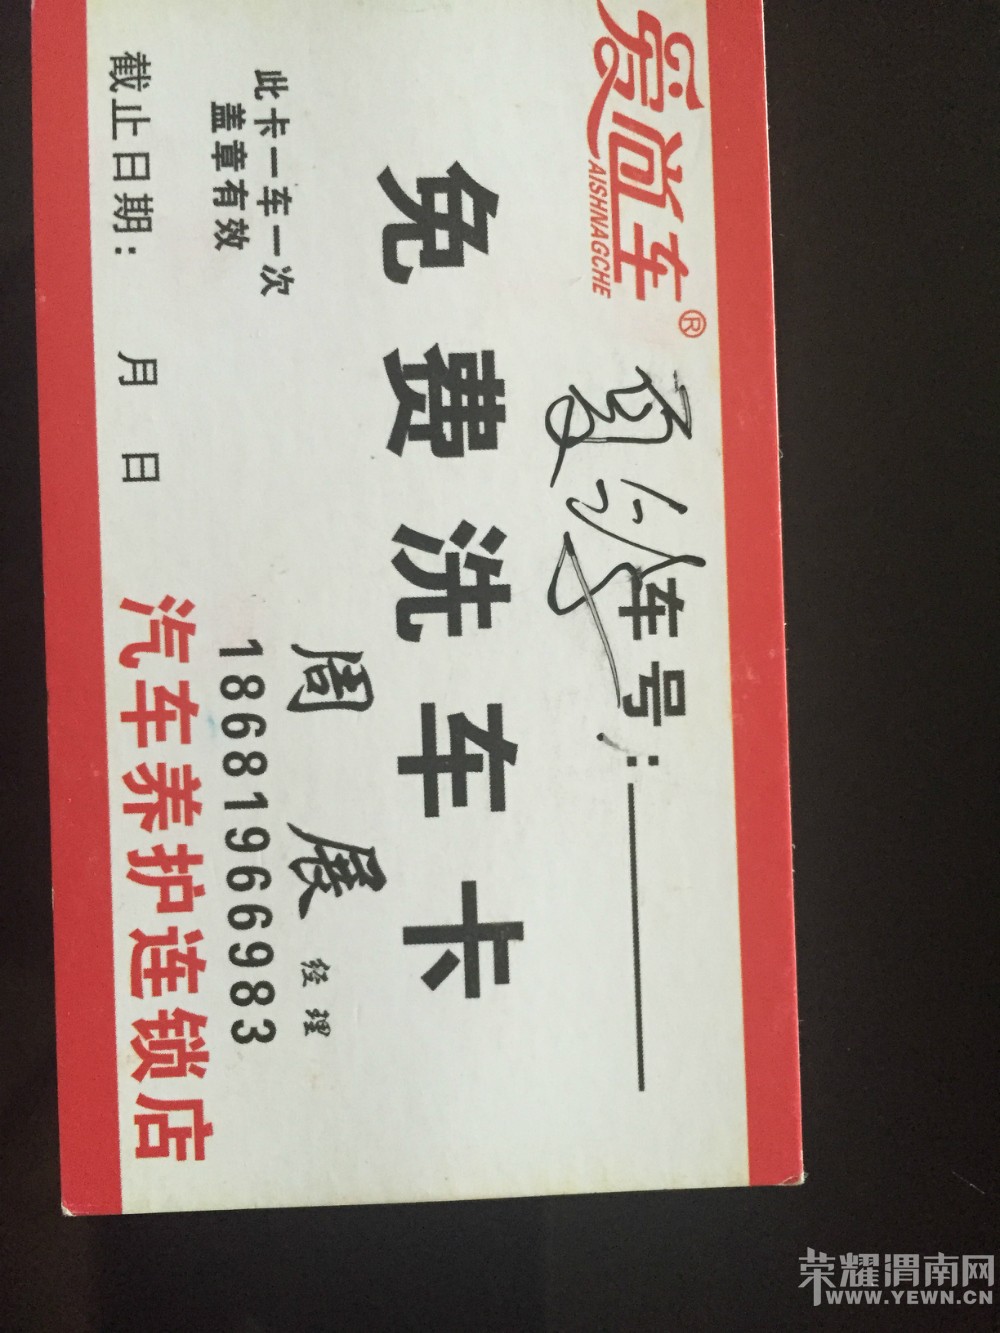 爱尚车®
AISHNAGCHE
车号：
免费洗车卡
周展 经理
此卡一车一次
盖章有效
18681966983
截止日期： 月 日
汽车养护连锁店
荣耀渭南网
WWW.YEWN.CN